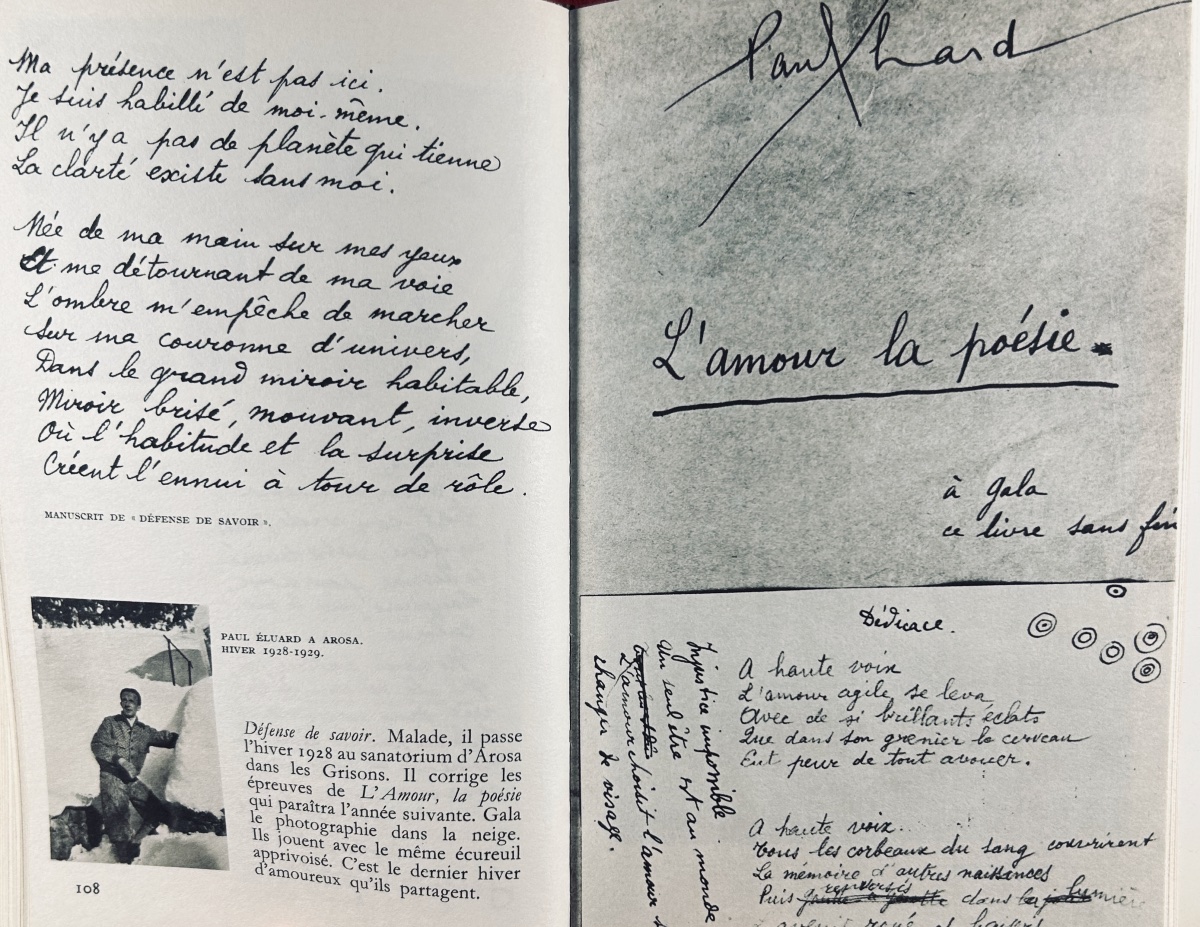 Ma présence n'est pas ici.
Je suis habillé de moi-même.
Il n'y a pas de planète qui tienne
La clarté existe sans moi.
Née de ma main sur mes yeux
Et me détournant de ma voie
L'ombre m'empêche de marcher
Sur ma couronne d'univers,
Dans le grand miroir habitable,
Miroir brisé, mouvant, inverse
Où l'habitude et la surprise
Créent l'ennui à tour de rôle.
MANUSCRIT DE « DÉFENSE DE SAVOIR ».
PAUL ÉLUARD A AROSA.
HIVER 1928-1929.
Défense de savoir. Malade, il passe
l'hiver 1928 au sanatorium d'Arosa
dans les Grisons. Il corrige les
épreuves de L'Amour, la poésie
qui paraîtra l'année suivante. Gala
le photographie dans la neige.
Ils jouent avec le même écureuil
apprivoisé. C'est le dernier hiver
d'amoureux qu'ils partagent.
108
Paul Eluard
L'amour la poésie.
à Gala
ce livre sans fin
Dédicace.
A haute voix
L'amour agile se leva
Avec de si brillants éclats
Que dans son grenier le cerveau
Eut peur de tout avouer.
A haute voix
Tous les corbeaux du sang couvrirent
La mémoire d'autres naissances
Puis renversés dans la lumière
L'avenir roué de baisers
Injustice impossible
Un seul être est au monde
L'amour choisit l'amour s
changer de visage.